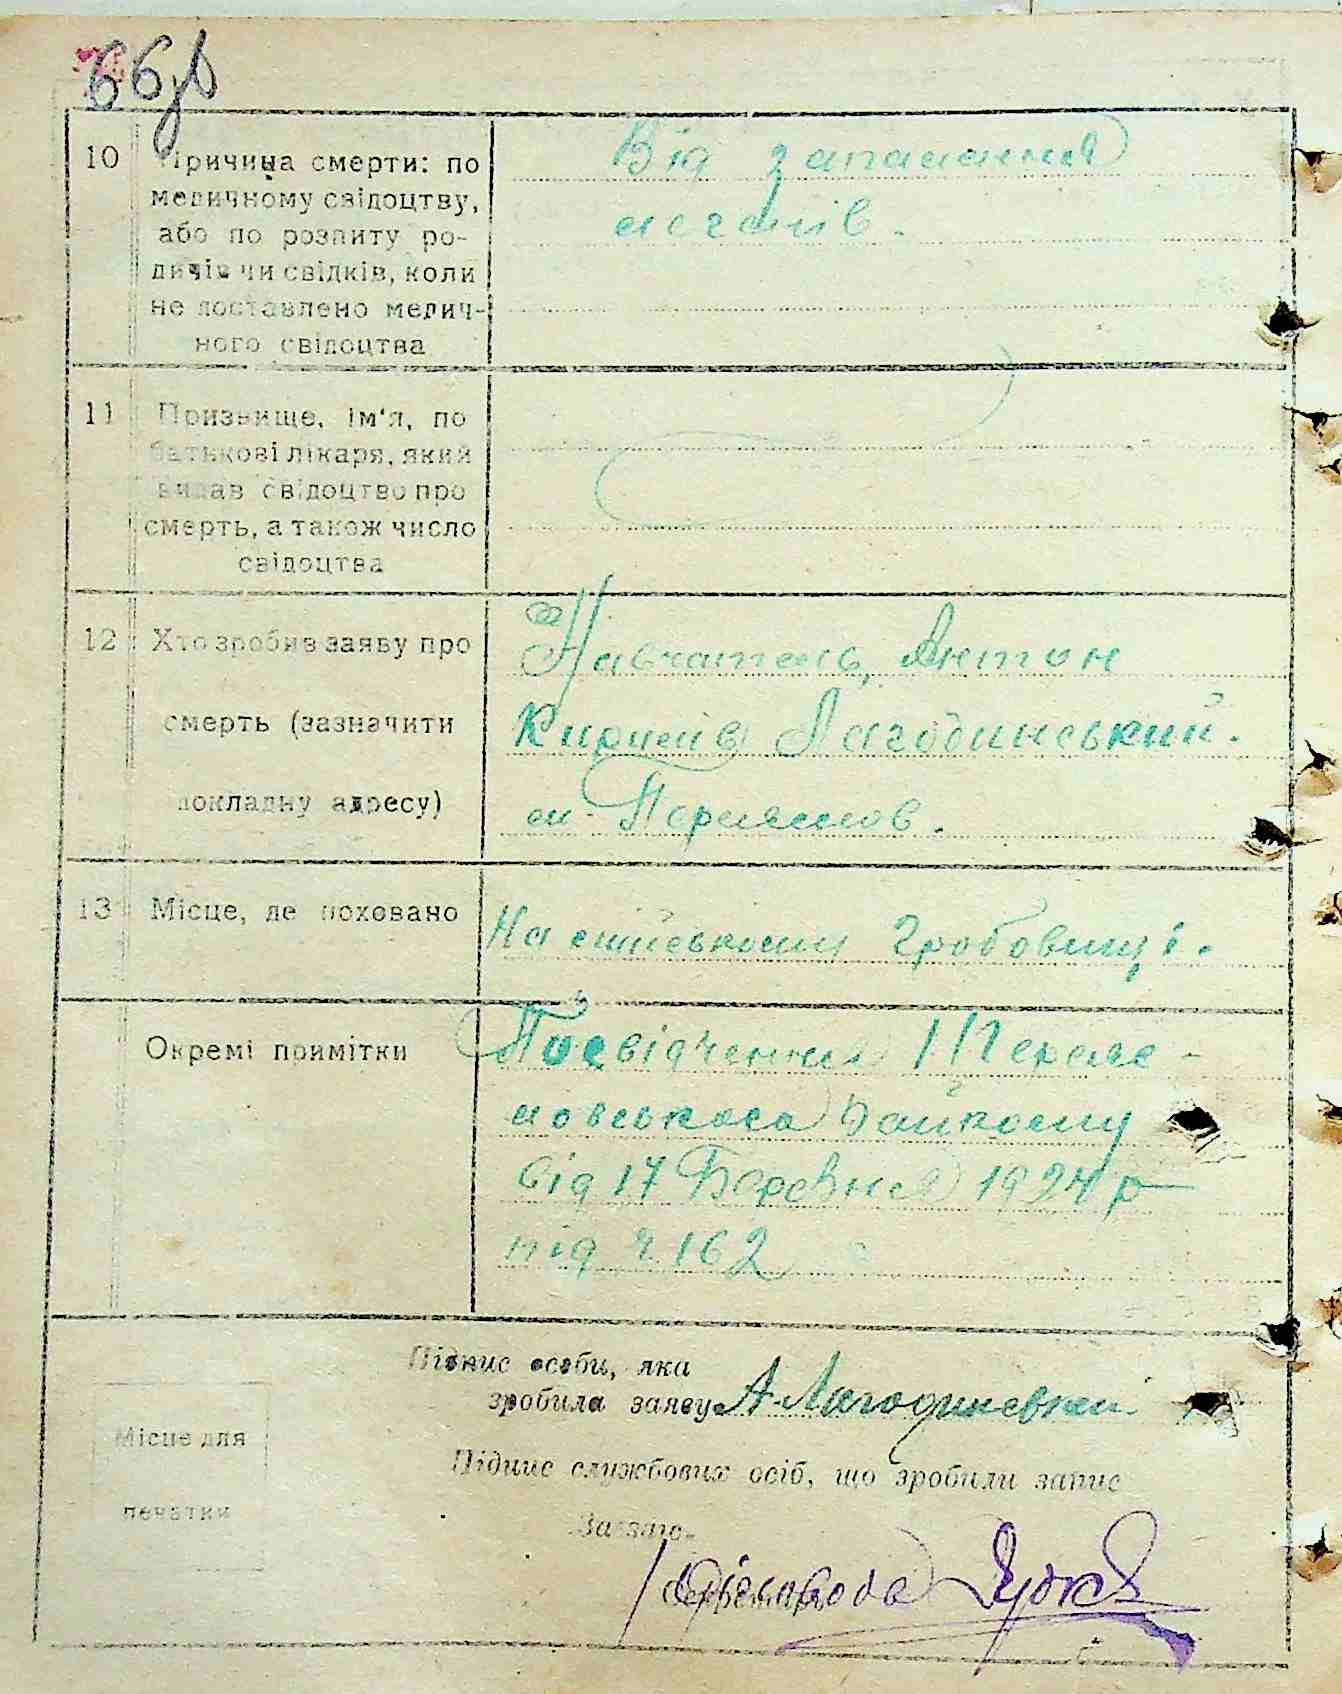 66зв
10 Причина смерти: по
медичному свідоцтву,
або по розпиту ро-
дичів чи свідків, коли
не доставлено медич-
ного свідоцтва
Від запалення
легенів.
11 Призвище, ім'я, по
батькові лікаря, який
видав свідоцтво про
смерть, а також число
свідоцтва
12 Хто зробив заяву про
смерть (зазначити
докладну адресу)
Навчатель, Антон
Кирилів Лагодинський.
м. Переяслов.
13 Місце, де поховано
На міському гробовищі.
Окремі примітки
Посвідчення Перея-
Райкому
від 17 Березня 1924 р
під ч. 162
Підпис особи, яка
зробила заяву А. Лагодинський
Місце для
печатки
Підпис службових осіб, що зробили запис
Зав. загс.